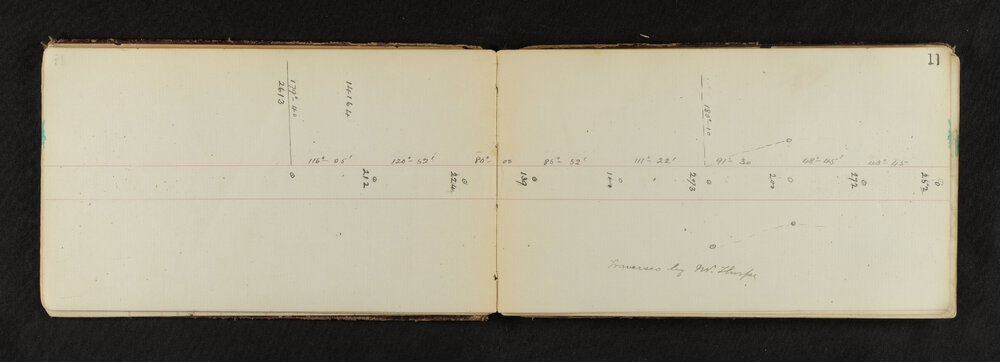 11
179°-40
2613
14.164
180°-10
116°-05' 120°-52' 80°-00 85°-52' 111°-22' 91°-30 48°-45' 43-45
212 224 139 293 200 272 252
Traverses by Mr. Thorpe